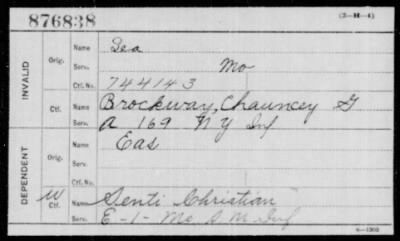 876838
(3-H-4)
INVALID
Orig.
Name
Serv. Mo
Ctf. No. 744143
Ctf.
Name Brockway, Chauncey G
Serv. A 169 N Y Inf
DEPENDENT
Orig.
Name Eas
Serv.
Ctf. No.
W
Ctf.
Name Senti Christian
Serv. E-1- Mo S M Inf
6-1302